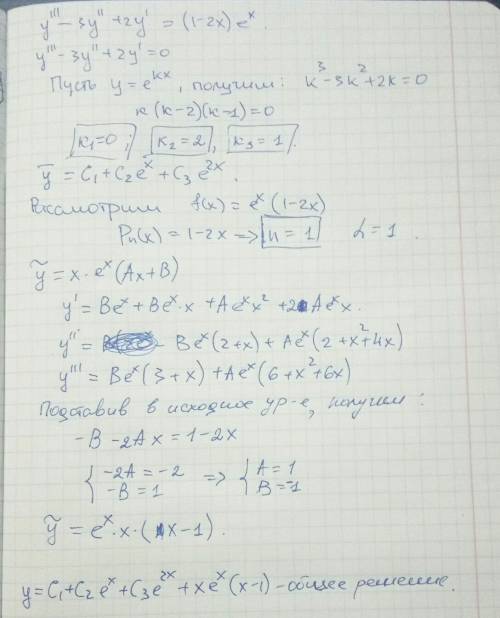 y''' - 3y'' + 2y' = (1-2x)eˣ.
y''' - 3y'' + 2y' = 0
Пусть y = eᵏˣ, получим: k³ - 3k² + 2k = 0
k(k-2)(k-1) = 0
k₁=0; k₂=2, k₃=1.
ȳ = C₁ + C₂eˣ + C₃e²ˣ.
Рассмотрим f(x) = eˣ(1-2x)
Pₙ(x) = 1-2x => n=1 α=1.
ỹ = x·eˣ(Ax+B)
y' = Beˣ + Beˣ·x + Aeˣx² + 2Aeˣx.
y'' = Beˣ(2+x) + Aeˣ(2+x²+4x)
y''' = Beˣ(3+x) + Aeˣ(6+x²+6x)
Подставив в исходное ур-е, получим:
-B - 2Ax = 1-2x
{ -2A = -2 => { A = 1
-B = 1 B = -1
ỹ = eˣ·x·(x-1).
y = C₁ + C₂eˣ + C₃e²ˣ + xeˣ(x-1) - общее решение.